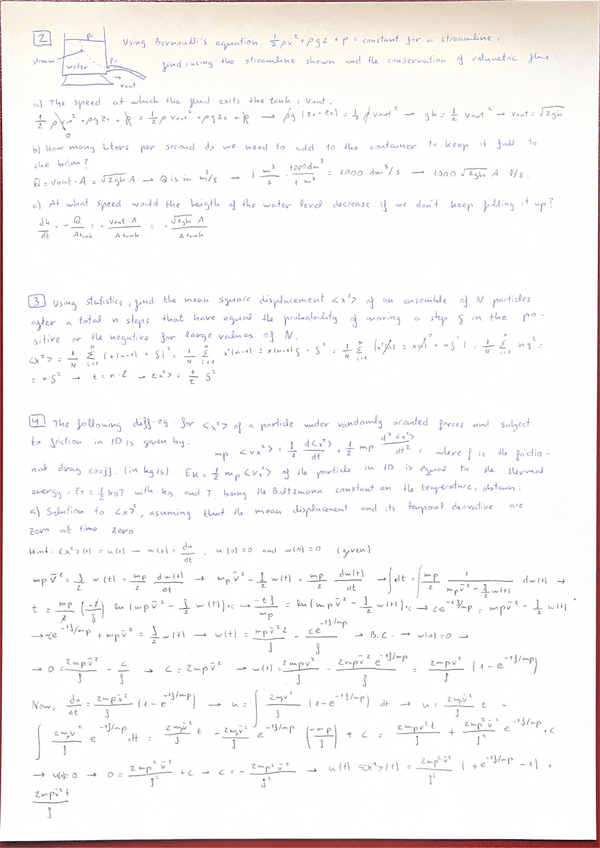 2 Using Bernoulli's equation ½ρv² + ρgz + p = constant for a streamline,
P₀
stream
water
P₀
vout
find, using the streamline shown and the conservation of volumetric flux:
a) The speed at which the fluid exits the tank, vout.
½ρvin² + ρgz₁ + P₀ = ½ρvout² + ρgz₂ + P₀ → ρg(z₁-z₂) = ½ρvout² → gh = ½vout² → vout = √2gh
0
b) How many liters per second do we need to add to the container to keep it full to
the brim?
Q = vout·A = √2gh A → Q is in m³/s → 1 m³/s · 1000dm³/1m³ = 1000 dm³/s → 1000 √2gh A l/s.
c) At what speed would the heigth of the water level decrease if we don't keep filling it up?
dh/dt = -Q/Atank = -vout·A/Atank = -√2gh A/Atank
3 Using statistics, find the mean square displacement <x²> of an ensemble of N particles
after a total n steps that have equal the probability of moving a step ς in the po-
sitive or the negative for large values of N.
<x²> = 1/N Σ (x(n-1) + ς)² = 1/N Σ x²(n-1) ± x(n-1)ς + ς² = 1/N Σ + nς² = 1/N Σ nς² =
= nς² → t = n·τ → <x²> = t/τ ς²
4 The following diff. eq. for <x²> of a particle under randomly oriented forces and subject
to friction in 1D is given by: mp <vx²> = ʃ/2 d<x²>/dt + ½ mp d²<x²>/dt², where ʃ is the frictio-
nal drag coeff. (in kg/s). Ek = ½ mp <vx²> of the particle in 1D is equal to the thermal
energy, Et = ½ kBT with kB and T being the Boltzmann constant an the temperature, obtain:
a) Solution to <x²>, asuming that the mean displacement and its temporal derivative are
zero at time zero
Hint: <x²>(t) = u(t) → w(t) = du/dt, u(0)=0 and w(0)=0 (given)
mp v̄² = ʃ/2 w(t) + mp/2 dw(t)/dt → mp v̄² - ʃ/2 w(t) = mp/2 dw(t)/dt → ∫dt = ∫ mp/2 1/(mp v̄² - ʃ/2 w(t)) dw(t) →
t = mp/2 (-2/ʃ) ln(mp v̄² - ʃ/2 w(t)) + c → -tʃ/mp = ln(mp v̄² - ʃ/2 w(t)) + c → ce^-tʃ/mp = mp v̄² - ʃ/2 w(t)
→ -ce^-tʃ/mp + mp v̄² = ʃ/2 w(t) → w(t) = mp v̄² 2/ʃ - ce^-tʃ/mp/ʃ → B.C. → w(0)=0 →
→ 0 = 2mp v̄²/ʃ - c/ʃ → c = 2mp v̄² → w(t) = 2mp v²/ʃ - 2mp v̄² e^-tʃ/mp/ʃ = 2mp v̄²/ʃ (1 - e^-tʃ/mp)
Now, du/dt = 2mp v̄²/ʃ (1 - e^-tʃ/mp) → u = ∫ 2mp v²/ʃ (1 - e^-tʃ/mp) dt → u = 2mp v̄²/ʃ t -
∫ 2mp v²/ʃ e^-tʃ/mp dt = 2mp v̄²/ʃ t - 2mp v̄²/ʃ e^-tʃ/mp (-mp/ʃ) + c = 2mp v̄² t/ʃ + 2mp² v̄²/ʃ² e^-tʃ/mp + c
→ u(0)=0 → 0 = 2mp² v̄²/ʃ² + c → c = -2mp² v̄²/ʃ² → u(t) = <x²>(t) = 2mp² v̄²/ʃ² (+e^-tʃ/mp - 1) +
2mp v̄² t/ʃ